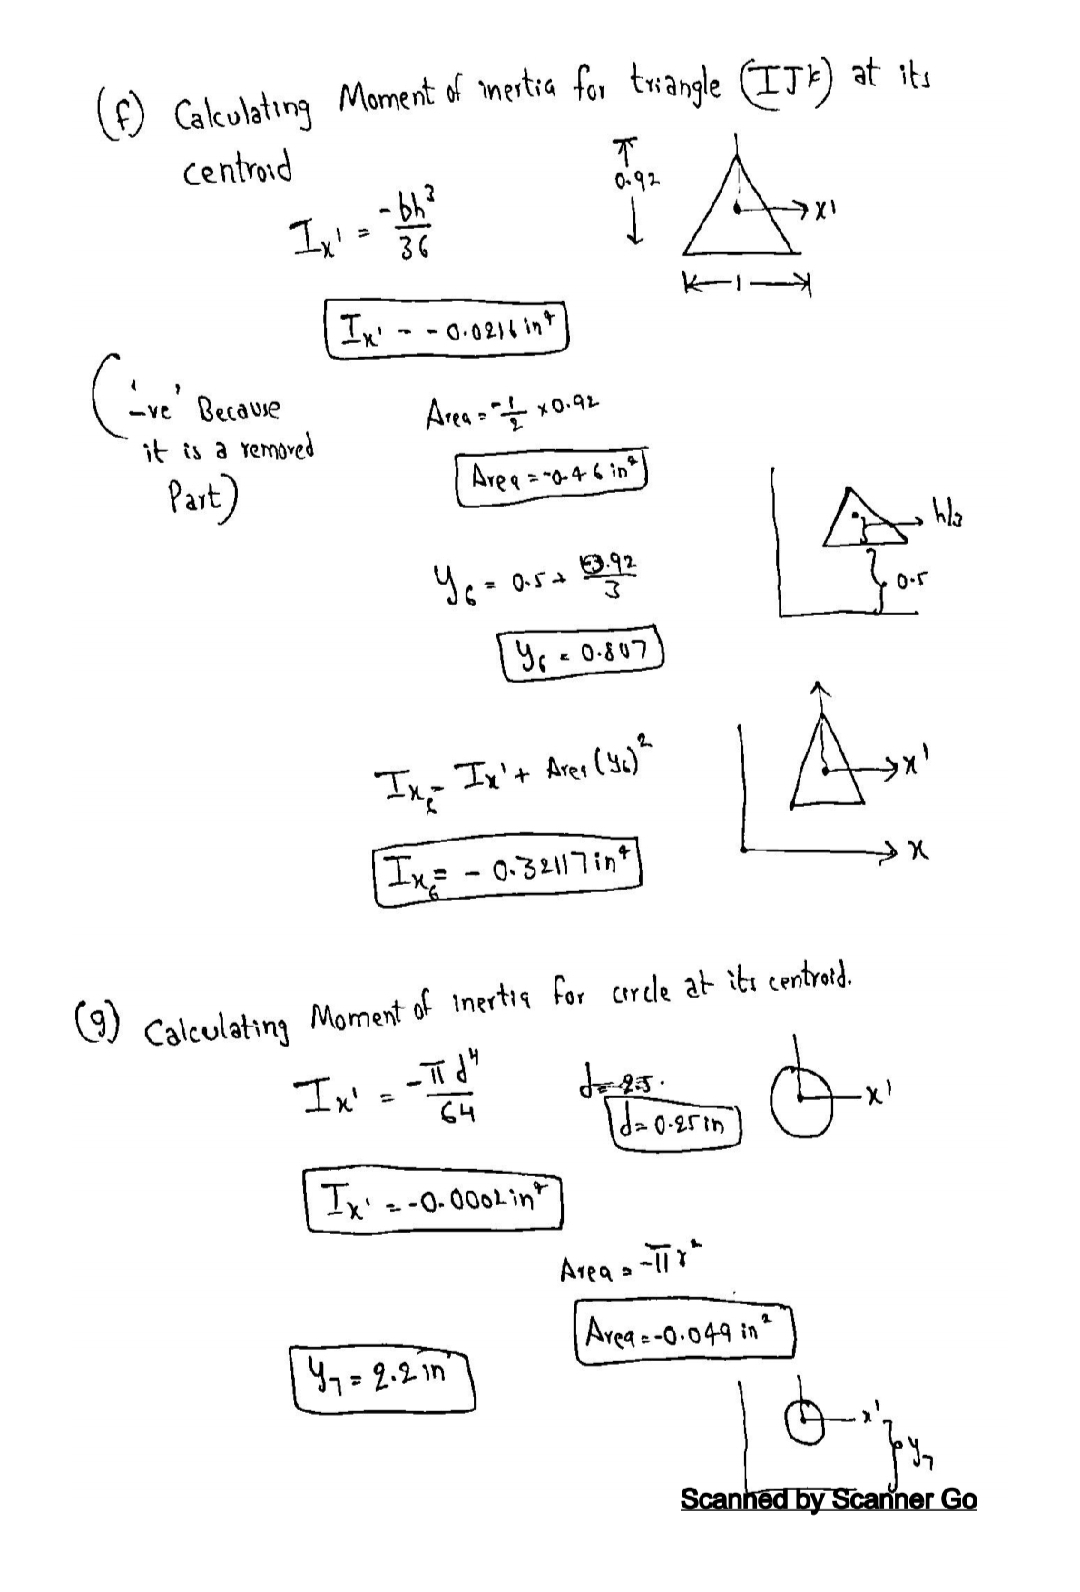 (f) Calculating Moment of inertia for triangle (IJK) at its
centroid
Ix' = -bh³/36
0.92
x'
1
Ix' = -0.0216 in⁴
('-ve' Because
it is a removed
Part)
Area = -1/2 x 0.92
Area = -0.46 in²
h/3
y₆ = 0.5 + 0.92/3
0.5
y₆ = 0.807
Ix₆ = Ix' + Area (y₆)²
x'
Ix₆ = -0.32117 in⁴
x
(g) Calculating Moment of inertia for circle at its centroid.
Ix' = -πd⁴/64
d = 0.25 in
x'
Ix' = -0.0002 in⁴
Area = -πr²
Area = -0.049 in²
y₇ = 2.2 in
x'
y₇
Scanned by Scanner Go